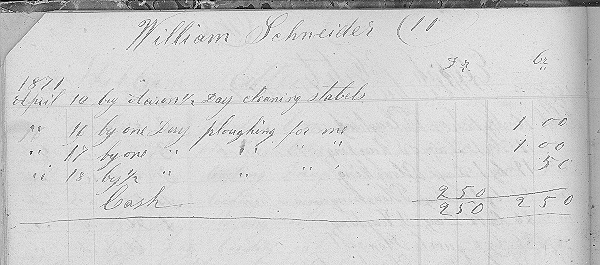 William Schneider (11
Dr Cr
1871
April 10 by ½ Day cleaning stabels
" 16 by one Day ploughing for me 1 00
" 17 by one " " " " 1 00
" 18 by ½ " " " 50
Cash 2 50
2 50 2 50